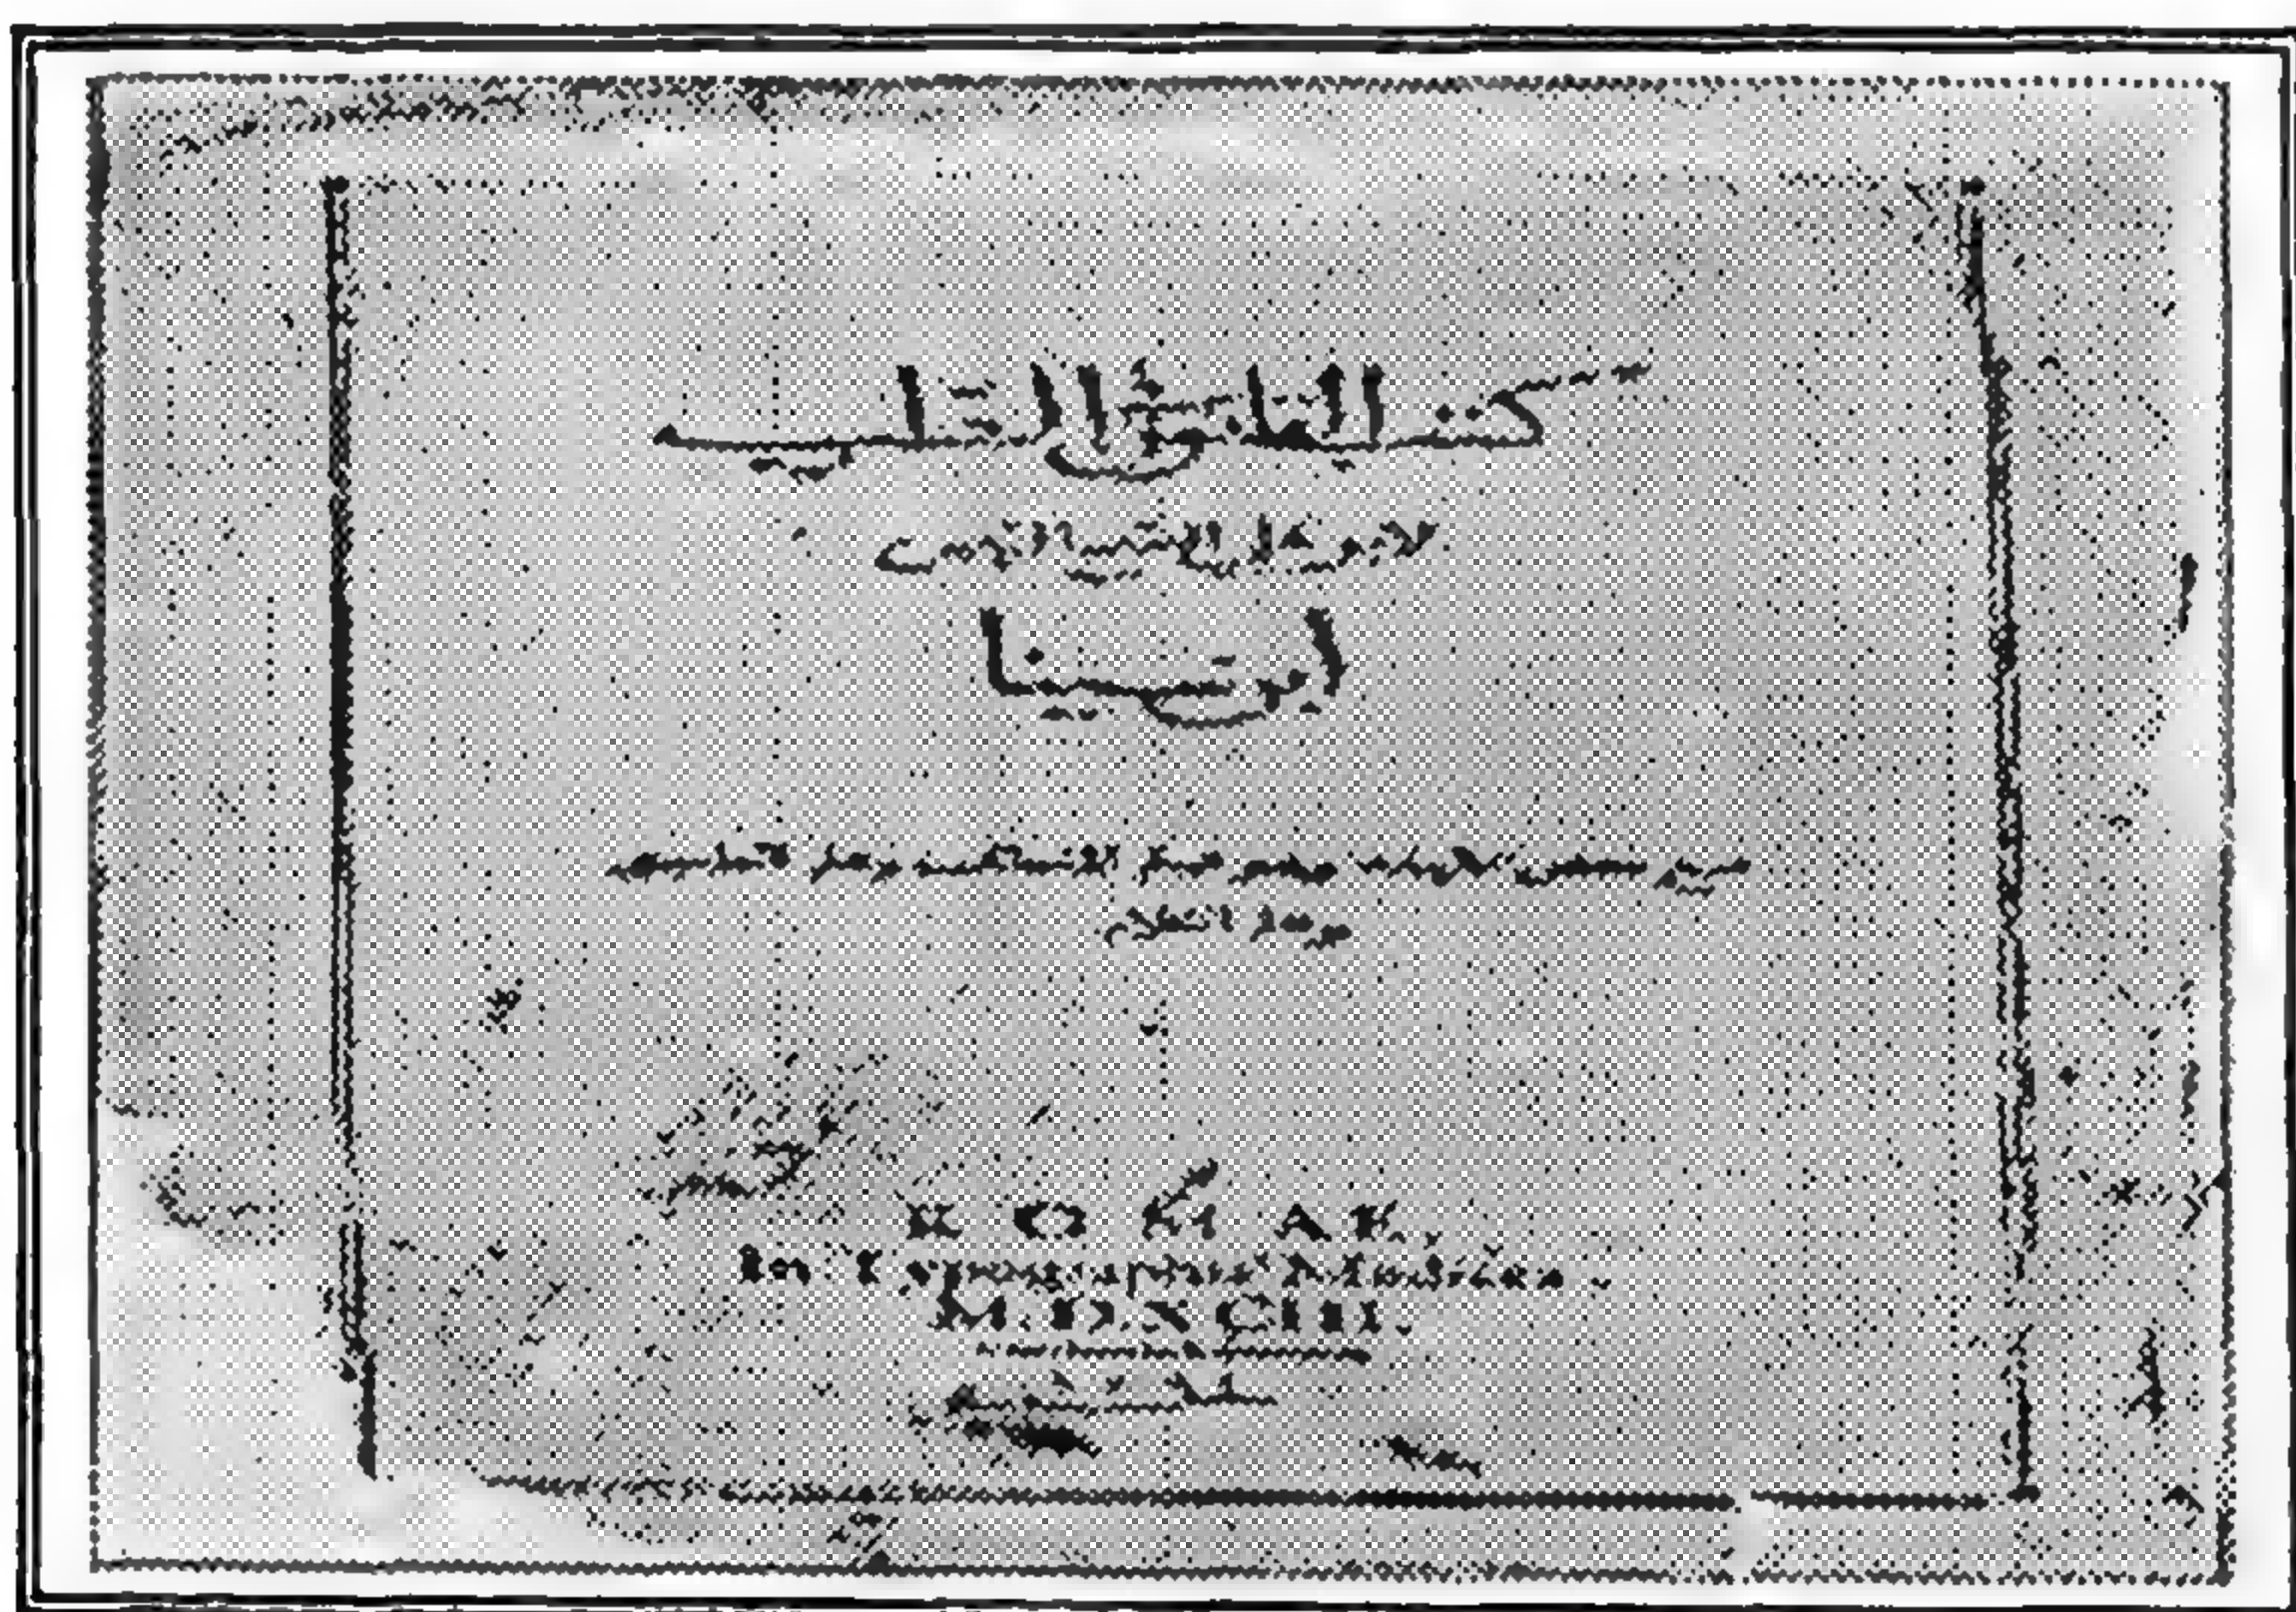 كتب القانون في الطب
لابو علي الشيخ الرئيس
ابن سينا
مع بعض تاليفه وهو علم المنطق وعلم الطبيعي
وعلم الكلام
R O M A E,
In Typographia Medicea.
M. D. XCIII.